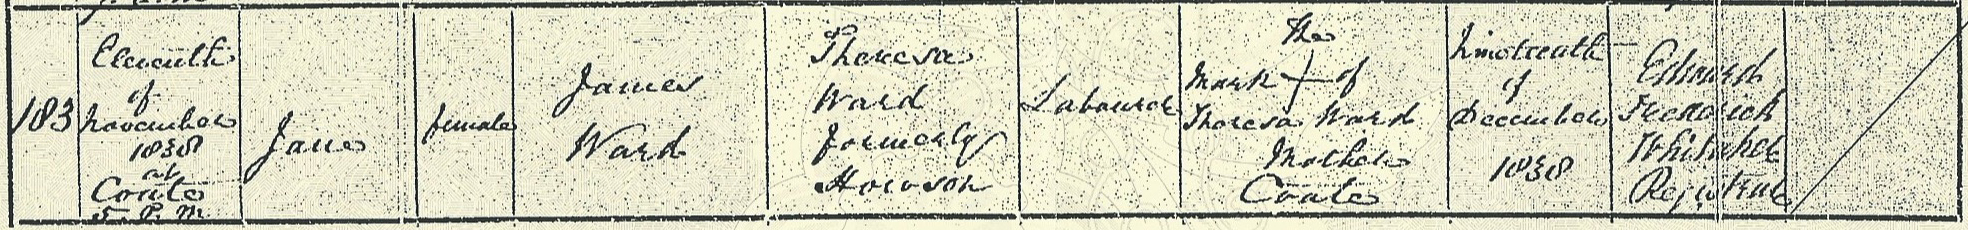 183
Eleventh
of
November
1838
at
Coate
5 P. M.
Jane
female
James
Ward
Theresa
Ward
formerly
Howson
Labourer
The
Mark + of
Theresa Ward
Mother
Coate
Nineteenth
of
December
1838
Edward
Frederick
Registrar